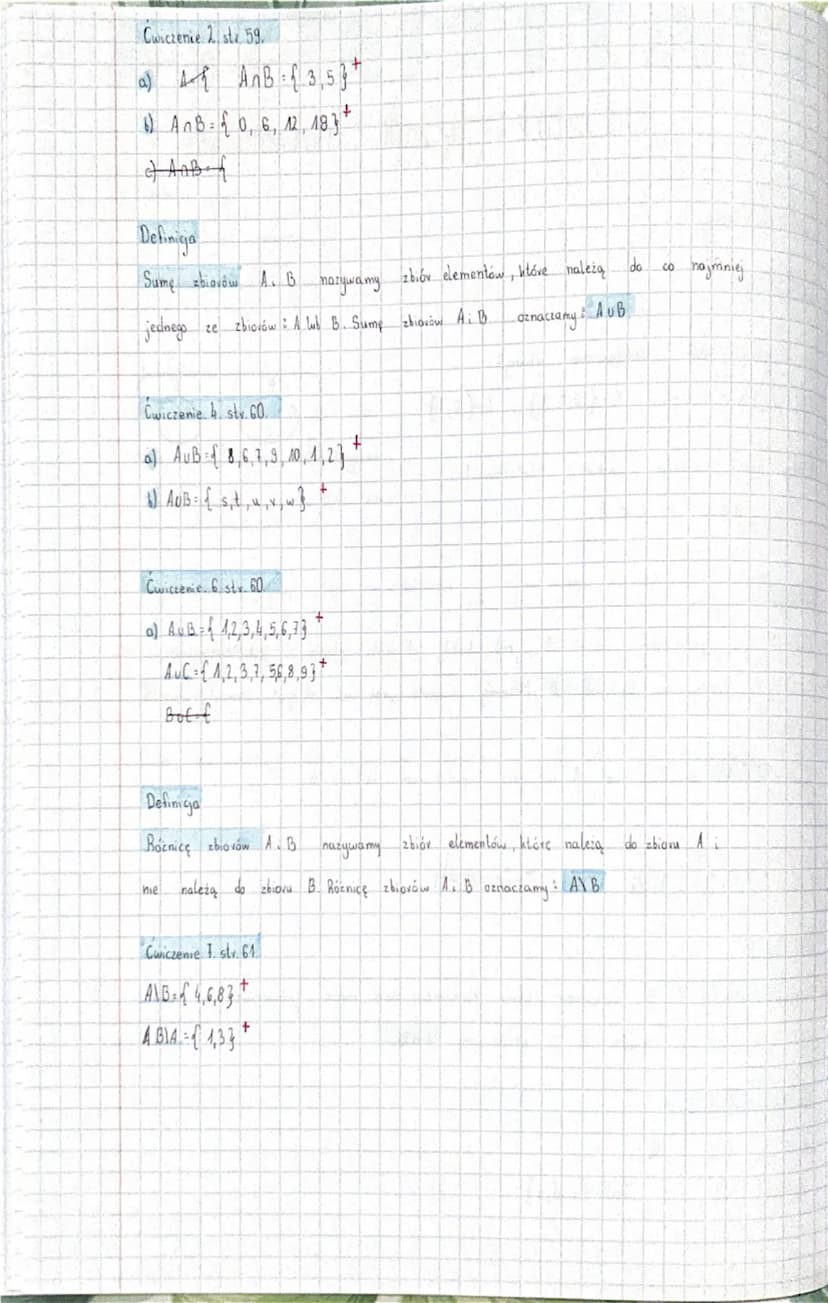 Ćwiczenie 2. str 59.
a) A={ A∩B={ 3,5} +
b) A∩B={ 0, 6, 12, 18} +
c) A∩B={
Definicja
Sumę zbiorów A i B nazywamy zbiór elementów, które należą do co najmniej
jednego ze zbiorów: A lub B. Sumę zbiorów A i B oznaczamy: A∪B
Ćwiczenie 4. str. 60.
a) A∪B={ 8,6,7,9,10,1,2} +
b) A∪B={ s,t,u,v,w} +
Ćwiczenie. 6 str. 60
a) A∪B={ 1,2,3,4,5,6,7} +
A∪C={ 1,2,3,7,5,6,8,9} +
B∪C={
Definicja
Różnicę zbiorów A i B nazywamy zbiór elementów, które należą do zbioru A i
nie należą do zbioru B. Różnicę zbiorów A i B oznaczamy: A\B
Ćwiczenie 7. str. 61.
A\B={ 4,6,8} +
B\A={ 1,3} +